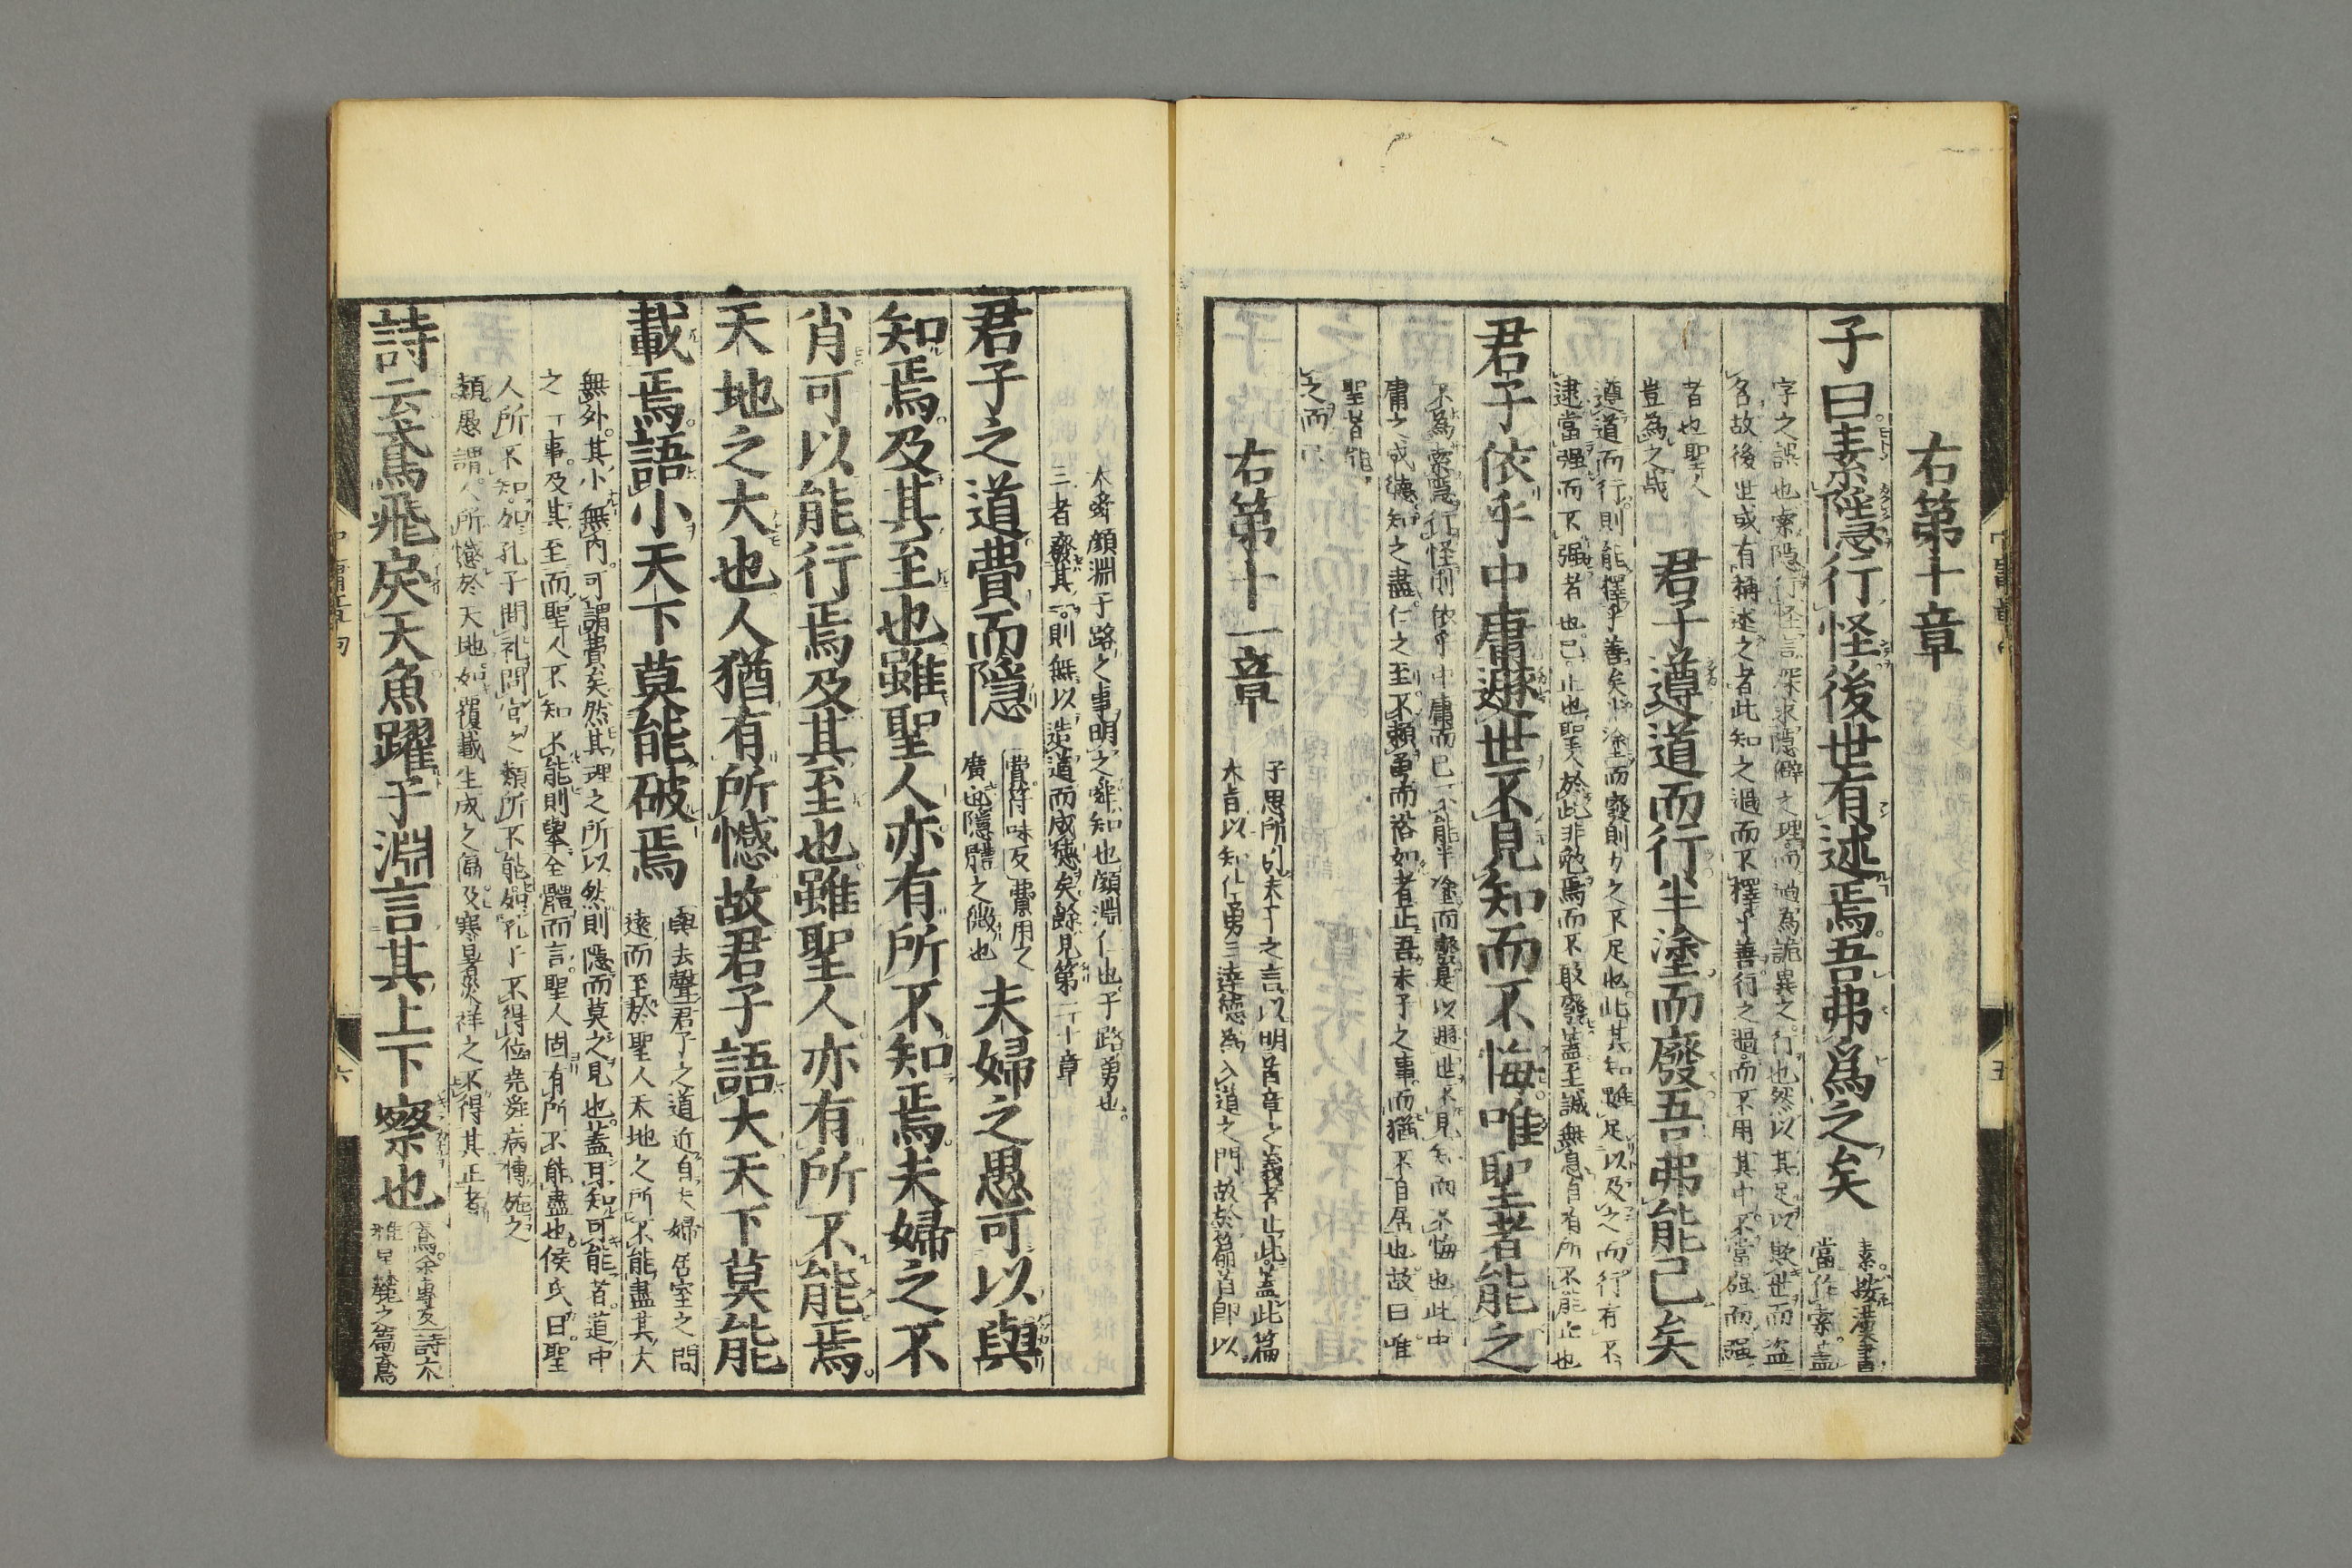 右第十章
子曰素隱行怪後世有述焉吾弗爲之矣
素按漢書
當作索蓋
字之誤也索隱行怪言深求隱僻之理而過爲詭異之行也然以其足以欺世而盜
名故後世或有稱述之者此知之過而不擇乎善行之過而不用其中不當强而强
者也聖人
豈爲之哉
君子遵道而行半塗而廢吾弗能已矣
遵道而行則能擇乎善矣半塗而廢則力之不足也此其知雖足以及之而行有不
逮當强而不强者也已止也聖人於此非勉焉而不敢廢蓋至誠無息自有所不能止也
君子依乎中庸遯世不見知而不悔唯聖者能之
不爲索隱行怪則依乎中庸而已不能半塗而廢是以遯世不見知而不悔也此中
庸之成德知之盡仁之至不賴勇而裕如者正吾夫子之事而猶不自居也故曰唯
聖者能
之而已
右第十一章
子思所引夫子之言以明首章之義者止此蓋此篇
大旨以知仁勇三達德爲入道之門故於篇首即以
大舜顏淵子路之事明之舜知也顏淵仁也子路勇也
三者廢其一則無以造道而成德矣餘見第二十章
君子之道費而隱
費符味反費用之
廣也隱體之微也
夫婦之愚可以與
知焉及其至也雖聖人亦有所不知焉夫婦之不
肖可以能行焉及其至也雖聖人亦有所不能焉
天地之大也人猶有所憾故君子語大天下莫能
載焉語小天下莫能破焉
與去聲君子之道近自夫婦居室之間
遠而至於聖人天地之所不能盡其大
無外其小無内可謂費矣然其理之所以然則隱而莫之見也蓋可知可能者道中
之一事及其至而聖人不知不能則舉全體而言聖人固有所不能盡也侯氏曰聖
人所不知如孔子問礼問官之類所不能如孔子不得位堯舜病博施之
類愚謂人所憾於天地如覆載生成之偏及寒暑災祥之不得其正者
詩云鳶飛戾天魚躍于淵言其上下察也
鳶余專反詩大
雅旱麓之篇鳶
中庸章句
六